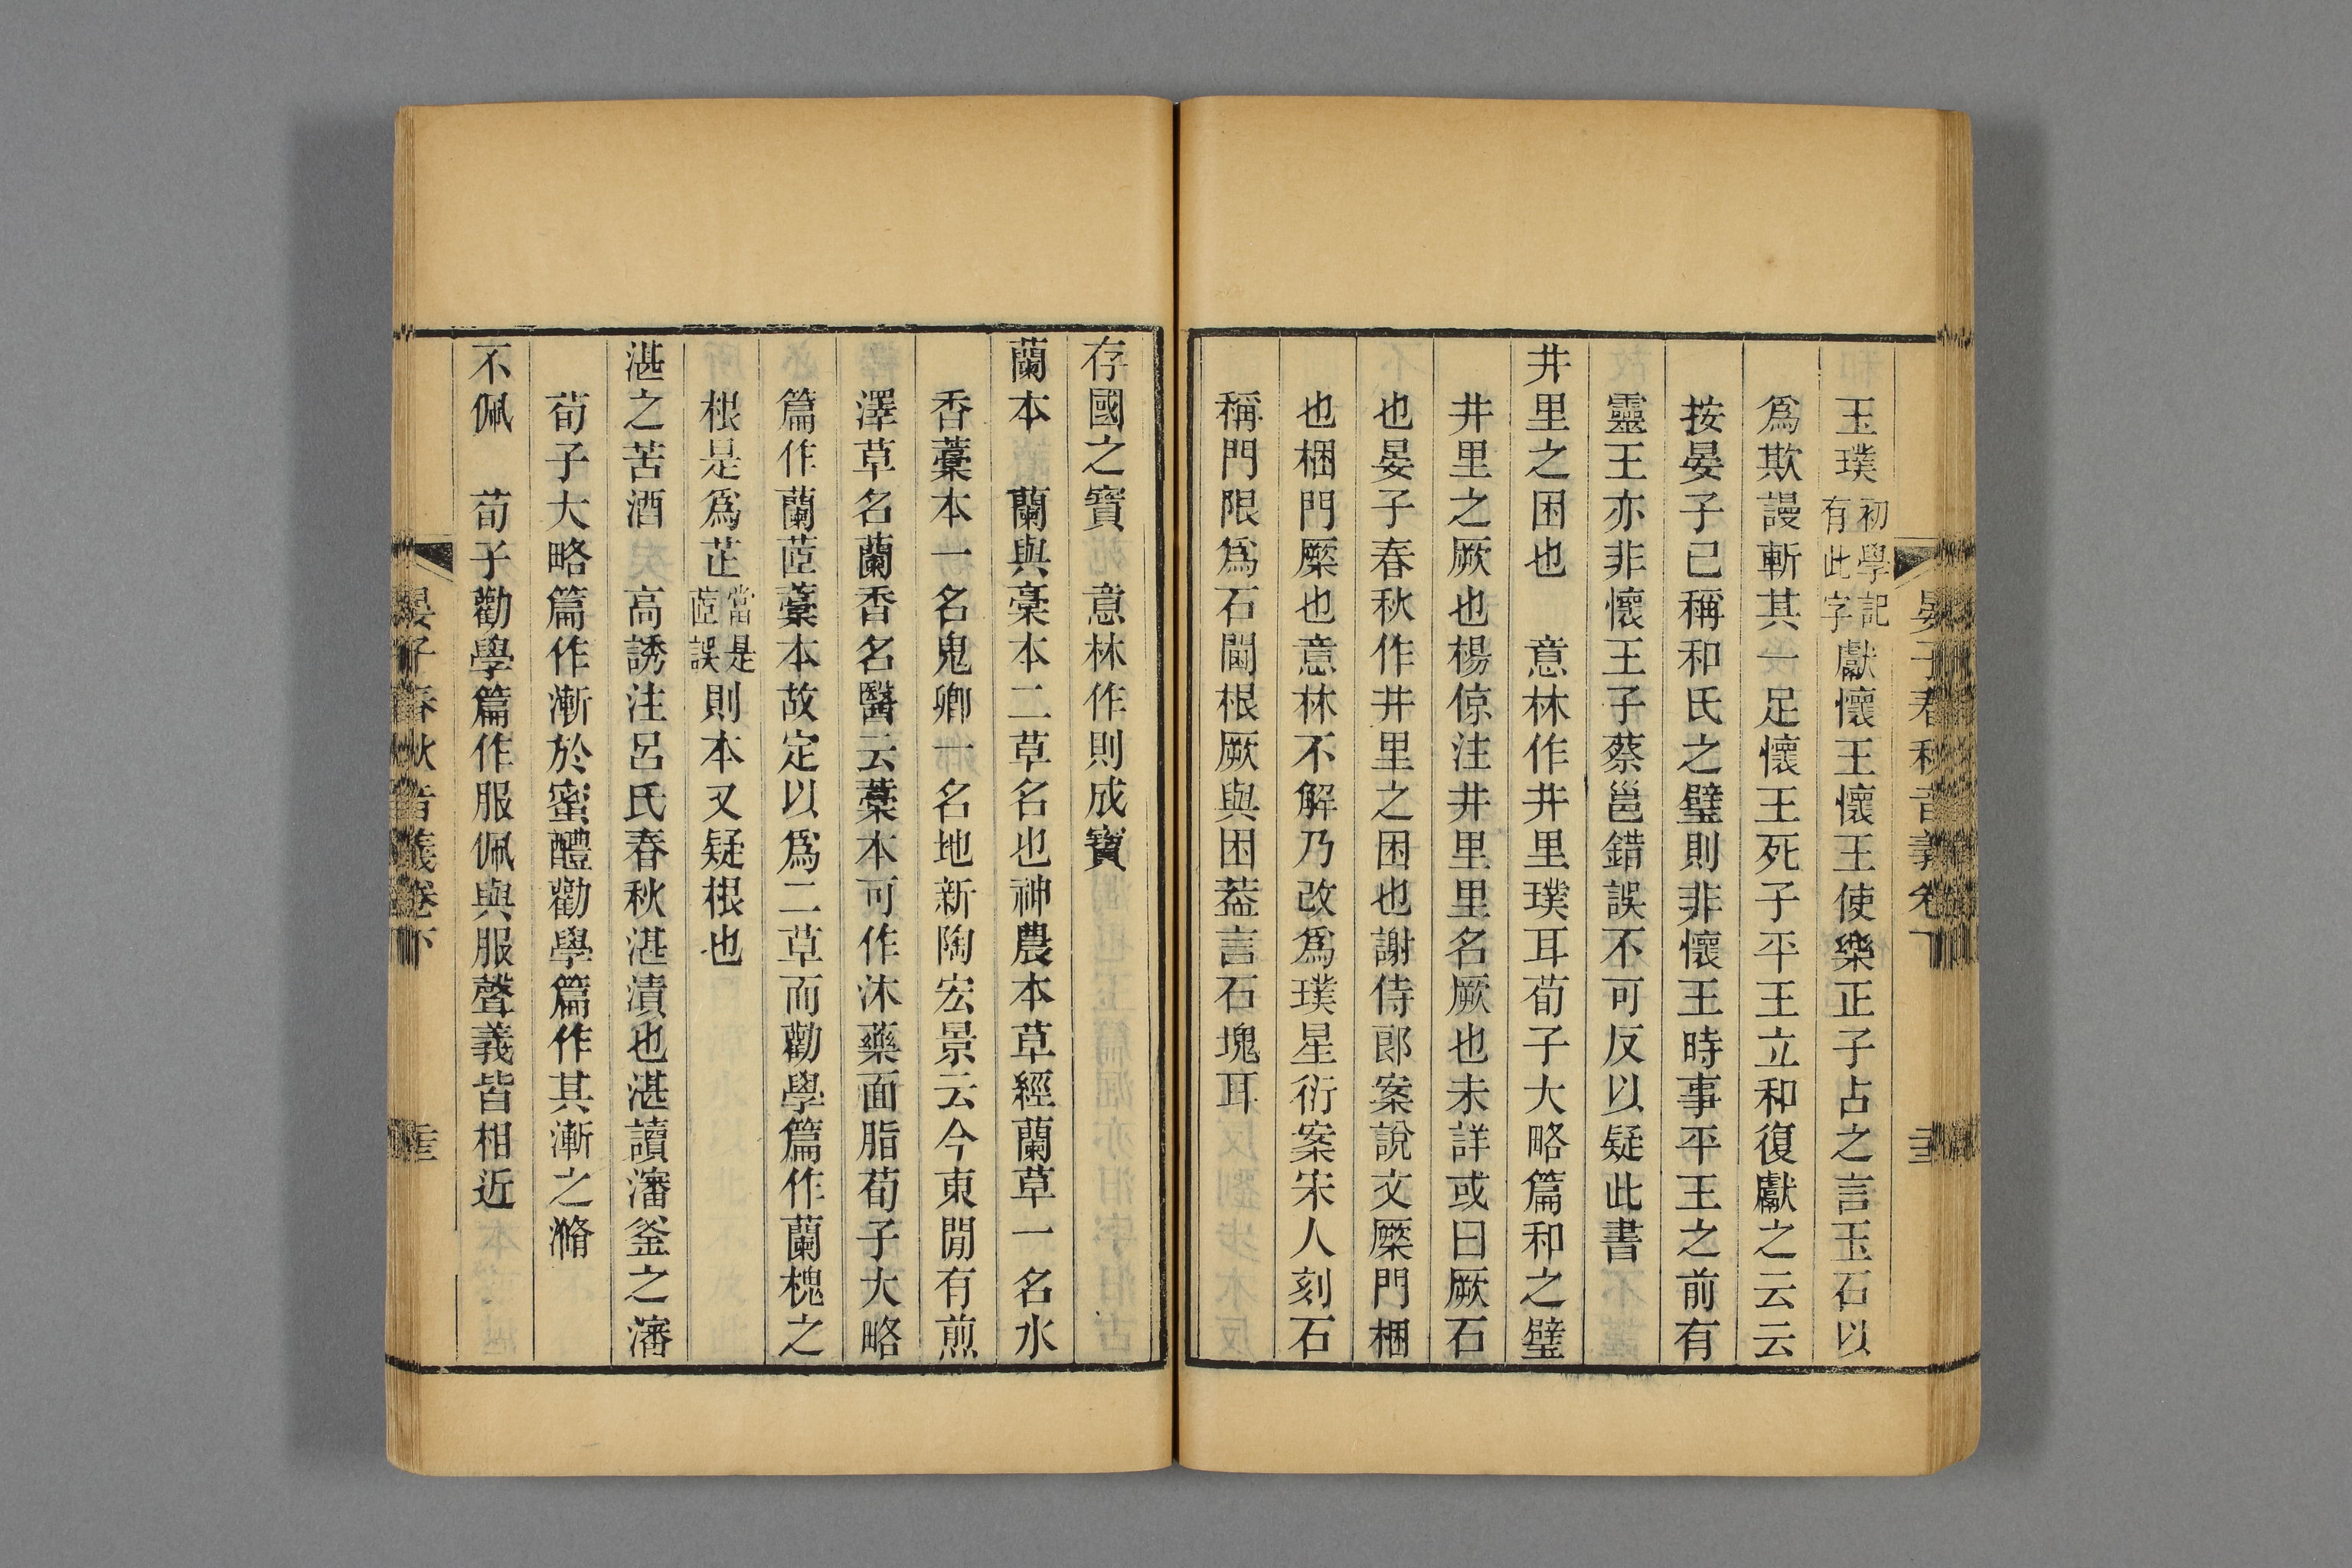 玉璞初學記有此字獻懷王懷王使樂正子占之言玉石以
爲欺謾斬其一足懷王死子平王立和復獻之云云
按晏子已稱和氏之璧則非懷王時事平王之前有
靈王亦非懷王子蔡邕錯誤不可反以疑此書
井里之困也　意林作井里璞耳荀子大略篇和之璧
井里之厥也楊倞注井里里名厥也未詳或曰厥石
也晏子春秋作井里之困也謝侍郎案說文橜門梱
也梱門橜也意林不解乃改爲璞星衍案宋人刻石
稱門限爲石閫根厥與困葢言石塊耳
存國之寶　意林作則成寶
蘭本　蘭與藁本二草名也神農本草經蘭草一名水
香藁本一名鬼卿一名地新陶宏景云今東閒有煎
澤草名蘭香名醫云藁本可作沐藥面脂荀子大略
篇作蘭茝藁本故定以爲二草而勸學篇作蘭槐之
根是爲芷當是茝誤則本又疑根也
湛之苦酒　高誘注呂氏春秋湛漬也湛讀瀋釜之瀋
荀子大略篇作漸於蜜醴勸學篇作其漸之滫
不佩　荀子勸學篇作服佩與服聲義皆相近
晏子春秋音義卷下